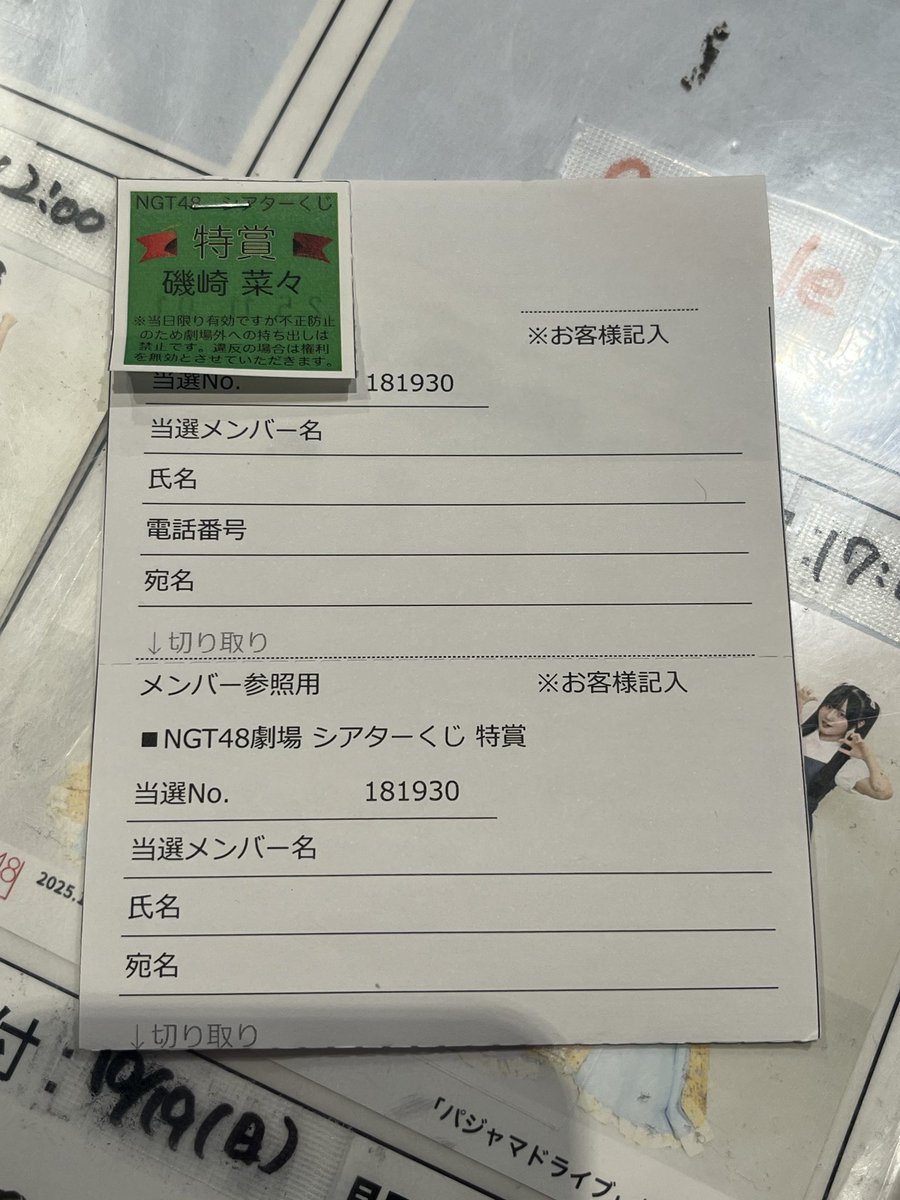 12:00
NGT48 シアターくじ
特賞
磯崎 菜々
※当日限り有効ですが不正防止
のため劇場外への持ち出しは
禁止です。違反の場合は権利
を無効とさせていただきます。
※お客様記入
当選No. 181930
当選メンバー名
氏名
電話番号
宛名
↓切り取り
メンバー参照用 ※お客様記入
■NGT48劇場 シアターくじ 特賞
当選No. 181930
当選メンバー名
氏名
宛名
↓切り取り
17:
2025.
付:10/19(日)
「パジャマドライブ」